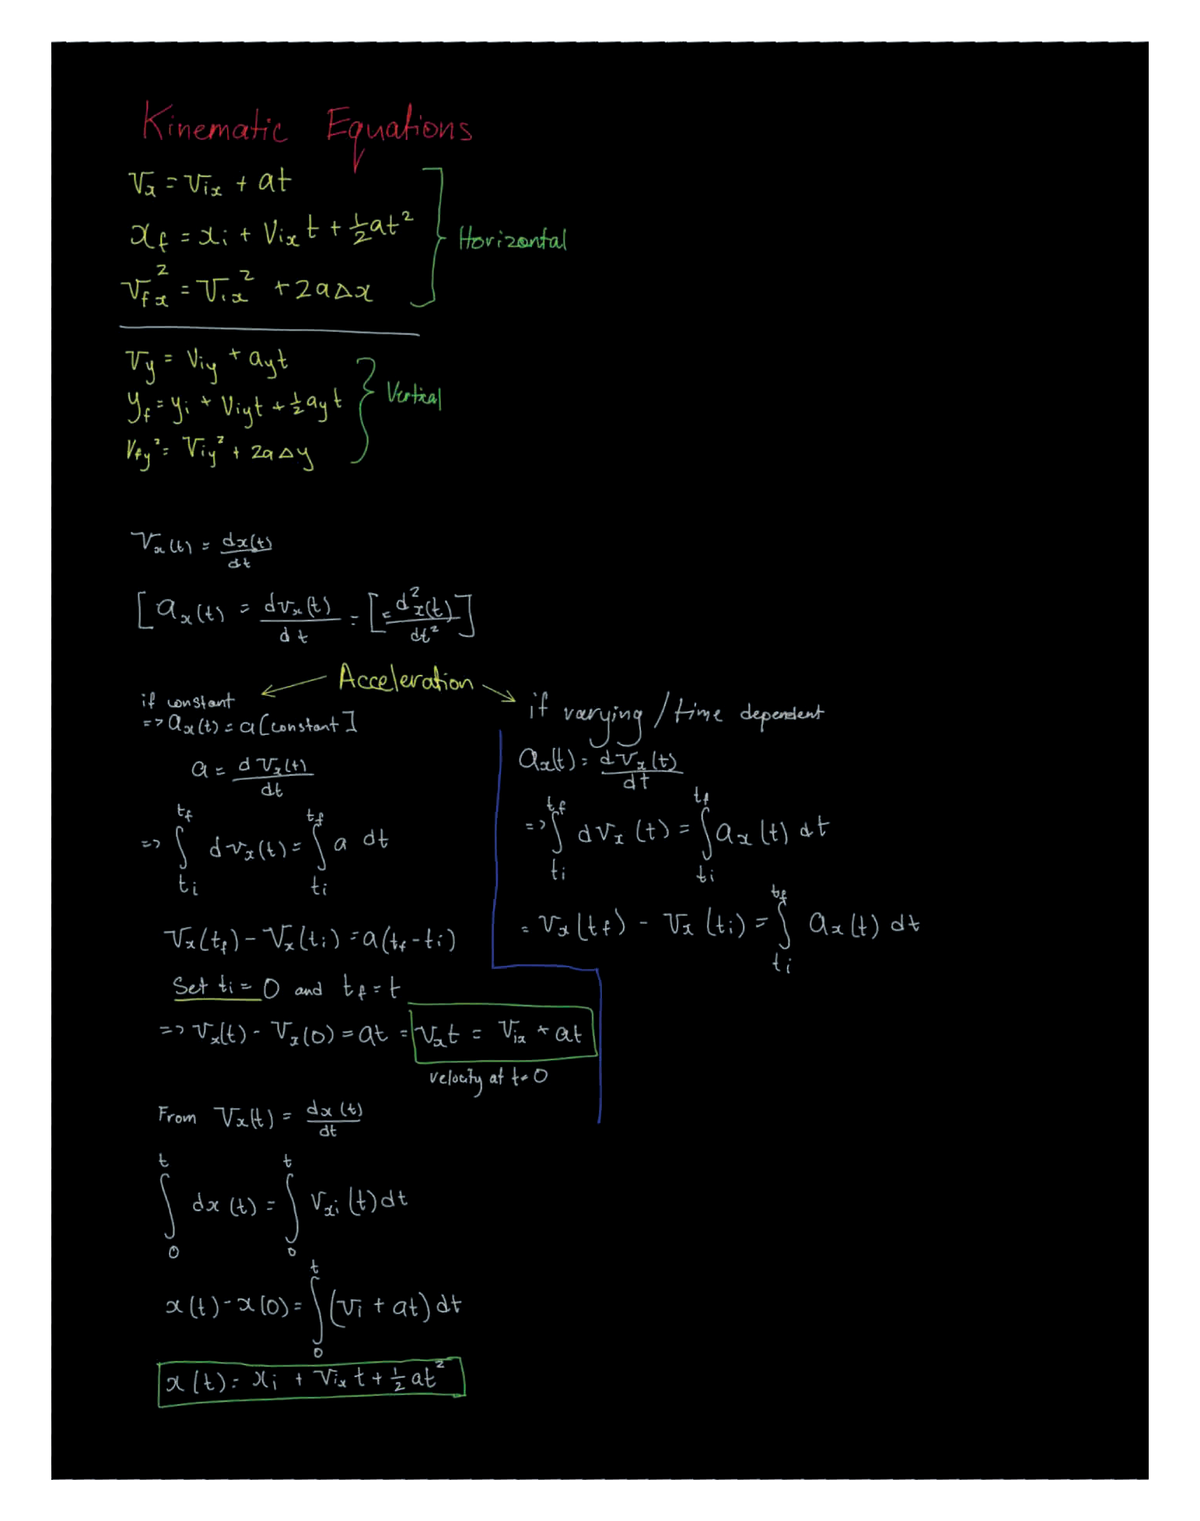 Kinematic Equations
Vₓ = Vᵢₓ + at
x_f = xᵢ + Vᵢₓ t + ½at²
V_fx² = Vᵢₓ² + 2aΔx
Horizontal
V_y = V_iy + a_y t
y_f = yᵢ + V_iy t + ½ a_y t
V_fy² = V_iy² + 2aΔy
Vertical
Vₓ(t) = dx(t)/dt
[aₓ(t) = dvₓ(t)/dt = [= d²x(t)/dt²]
Acceleration
if constant
=> aₓ(t) = a [constant]
a = dVₓ(t)/dt
=> ∫_{tᵢ}^{t_f} dvₓ(t) = ∫_{tᵢ}^{t_f} a dt
Vₓ(t_f) - Vₓ(tᵢ) = a(t_f - tᵢ)
Set tᵢ = 0 and t_f = t
=> Vₓ(t) - Vₓ(0) = at = Vₓt = Vᵢₓ + at
velocity at t=0
if varying / time dependent
aₓ(t) = dVₓ(t)/dt
=> ∫_{tᵢ}^{t_f} dVₓ(t) = ∫_{tᵢ}^{t_f} aₓ(t) dt
= Vₓ(t_f) - Vₓ(tᵢ) = ∫_{tᵢ}^{t_f} aₓ(t) dt
From Vₓ(t) = dx(t)/dt
∫₀^t dx(t) = ∫₀^t Vₓᵢ(t) dt
x(t) - x(0) = ∫₀^t (Vᵢ + at) dt
x(t) = xᵢ + Vᵢₓ t + ½ at²